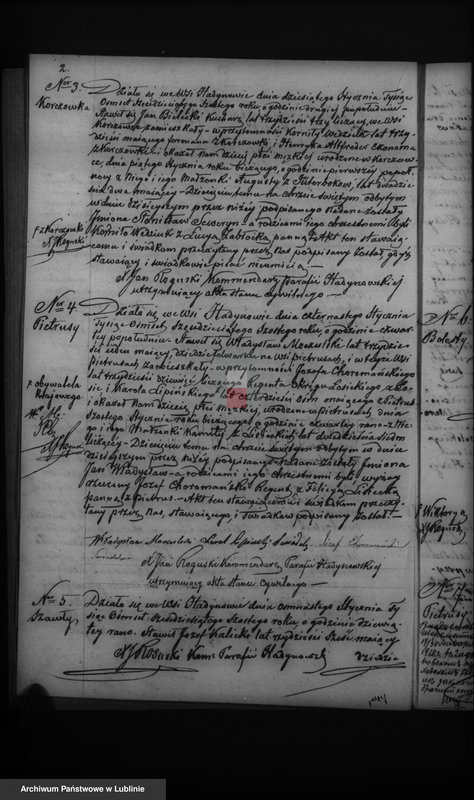 2.
Nro 3.
Korczowka
Działo się we Wsi Hadynowie dnia dziesiątego Stycznia Tysiąc
Ośmset Sześdziesiątego Szóstego roku o godzinie drugiej popołudniu
Stawił się Jan Bielecki Kucharz, lat trzydzieści trzy liczący, we wsi
Korczowce zamieszkały w przytomności Kornity lat trzy
dzieści mającego formana z Korczowki, i Henryka Ekonoma
z Korczowki i okazał Nam dziecię płci męzkiej urodzone w Korczow
ce, dnia piątego Stycznia roku bieżącego, o godzinie pierwszej popoł
nocy z Niego i jego Małżonki Augusty z lat dwadzie
ścia dwa mającej – Dziecięciu temu na Chrzcie Świętym odbytym
w dniu dzisiejszym przez niżej podpisanego nadane zostały
Jmiona Stanisław Seweryn a rodzicami jego chrzestnemi byli
z Łucyą panną Akt ten stawają
cemu i świadkom przeczytany przez Nas podpisany został gdyż
stawający i świadkowie pisać nieumieją –
X Jan Roguski Kommendarz Parafii Hadynowskiej
utrzymujący akta stanu cywilnego –
z Korczowki
Nro 4
Pietrusy
Działo się we Wsi Hadynowie dnia czternastego Stycznia
Tysiąc Ośmset Sześdziesiątego Szóstego roku, o godzinie czwar
tej popołudniu Stawił się Władysław Moszulski lat trzydzie
ści ośm mający, dziedzic folwarku na Wsi Pietrusach, w tejże Wsi
Pietrusach zamieszkały – w przytomności Jozefa Choromańskiego
lat trzydzieści dziewięć liczącego Regenta Okręgu Łosickiego z Ło
sic, i Karola Lipińskiego lat czterdzieści ośm mającego z Pietrus
i okazał Nam dziecię płci męzkiej, urodzone w Pietrusach dnia
szóstego Stycznia roku bieżącego o godzinie czwartej rano z Nie
go i jego Małżonki Kamilli z Liseckich lat dwadzieścia siedm
liczącej – Dziecięciu temu na Chrzcie świętym odbytym w dniu
dzisiejszym przez niżej podpisanego nadane zostały Jmiona
Jan Władysław – a rodzicami jego Chrzestnemi byli wyżej
rzeczony Jozef Choromański Regent z Felicyą Lisecką
panną z Pietrus – Akt ten stawającemu i świadkom przeczy
tany przez Nas, stawającego, i świadkow podpisany został –
Władysław Moszulski Karol Lipiński Świadek Jozef Choromański
świadek
X Jan Roguski Kommendarz Parafii Hadynowskiej
utrzymujący akta stanu Cywilnego –
z obywatela
krajowego
Nro 5
Szawły
Działo się we Wsi Hadynowie dnia osmnastego Stycznia Ty
siąc Ośmset Sześdziesiątego Szóstego roku, o godzinie dziewią
tej rano. Stawił Jozef Kalicki lat trzydzieści sześć mający
X J Roguski Kom. Parafii Hadynowskiej
dziedzic
Nro 6
Wiktorya
Nro 7
Pietrusy
Archiwum Państwowe w Lublinie